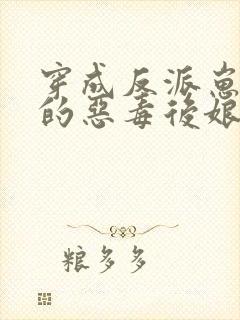 穿成反派崽
的惡毒後娘
粮多多